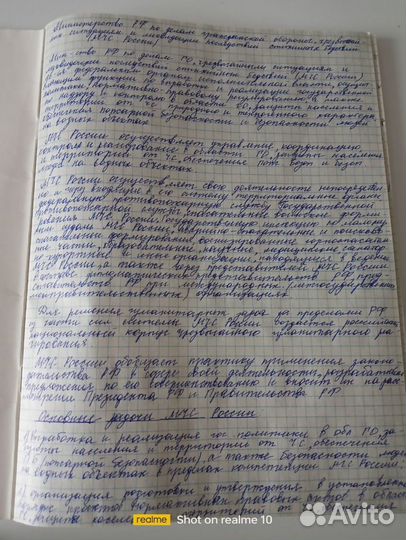 Министерство РФ по делам гражданской обороны, чрезвычай-
ным ситуациям и ликвидации последствий стихийных бедствий
(МЧС России)
Мин-ство РФ по делам ГО, чрезвычайным ситуациям и
ликвидации последствий стихийных бедствий (МЧС России)
явл федеральным органом исполнительной власти,
политики, нормативно-правовому
по надзору и контролю в области ГО, защиты населения и
территорий от ЧС природного и техногенного характера,
обеспечения пожарной безопасности и безопасности людей
на водных объектах
МЧС России осуществляет управление, координацию,
контроль и реагирование в области ГО, защиты населения
и территорий от ЧС, обеспечения пож безоп и безоп
людей на водных объектах.
МЧС России осуществляет свою деятельность непосредствен
но и через входящие в его систему территориальные органы
федеральную противопожарную службу Государственной
противопожарной службы, спасательные воинские форми
рования МЧС России, Государственную инспекцию по маломер
ным судам МЧС России, аварийно-спасательные и поисково
спасательные формирования, военизированные горноспасатель
ные части, образовательные, научные, медицинские, санаторно
курортные и иные организации, находящиеся в ведении
МЧС России, а также через представителей МЧС России
в составе дипломатических представительств РФ
РФ при международных (межгосударственных,
межправительственных) организациях.
Для решения гуманитарн задач за пределами РФ
МЧС России
национальный корпус чрезвычайного гуманитарного реа
гирования.
МЧС России обобщает практику применения законо
дательства РФ в сфере своей деятельности, разрабатывает
предложения по его совершенствованию и вносит их на рас
смотрение Президента РФ и Правительства РФ.
Основные задачи МЧС России
1) Выработка и реализация гос политики в обл ГО, за
щиты населения и территорий от ЧС, обеспечения
пожарной безопасности, а также безопасности людей
на водных объектах в пределах компетенции МЧС России;
2) организация подготовки и утверждения в установленном
порядке проектов нормативных правовых актов в области
защиты населения территорий от
realme Shot on realme 10
Avito